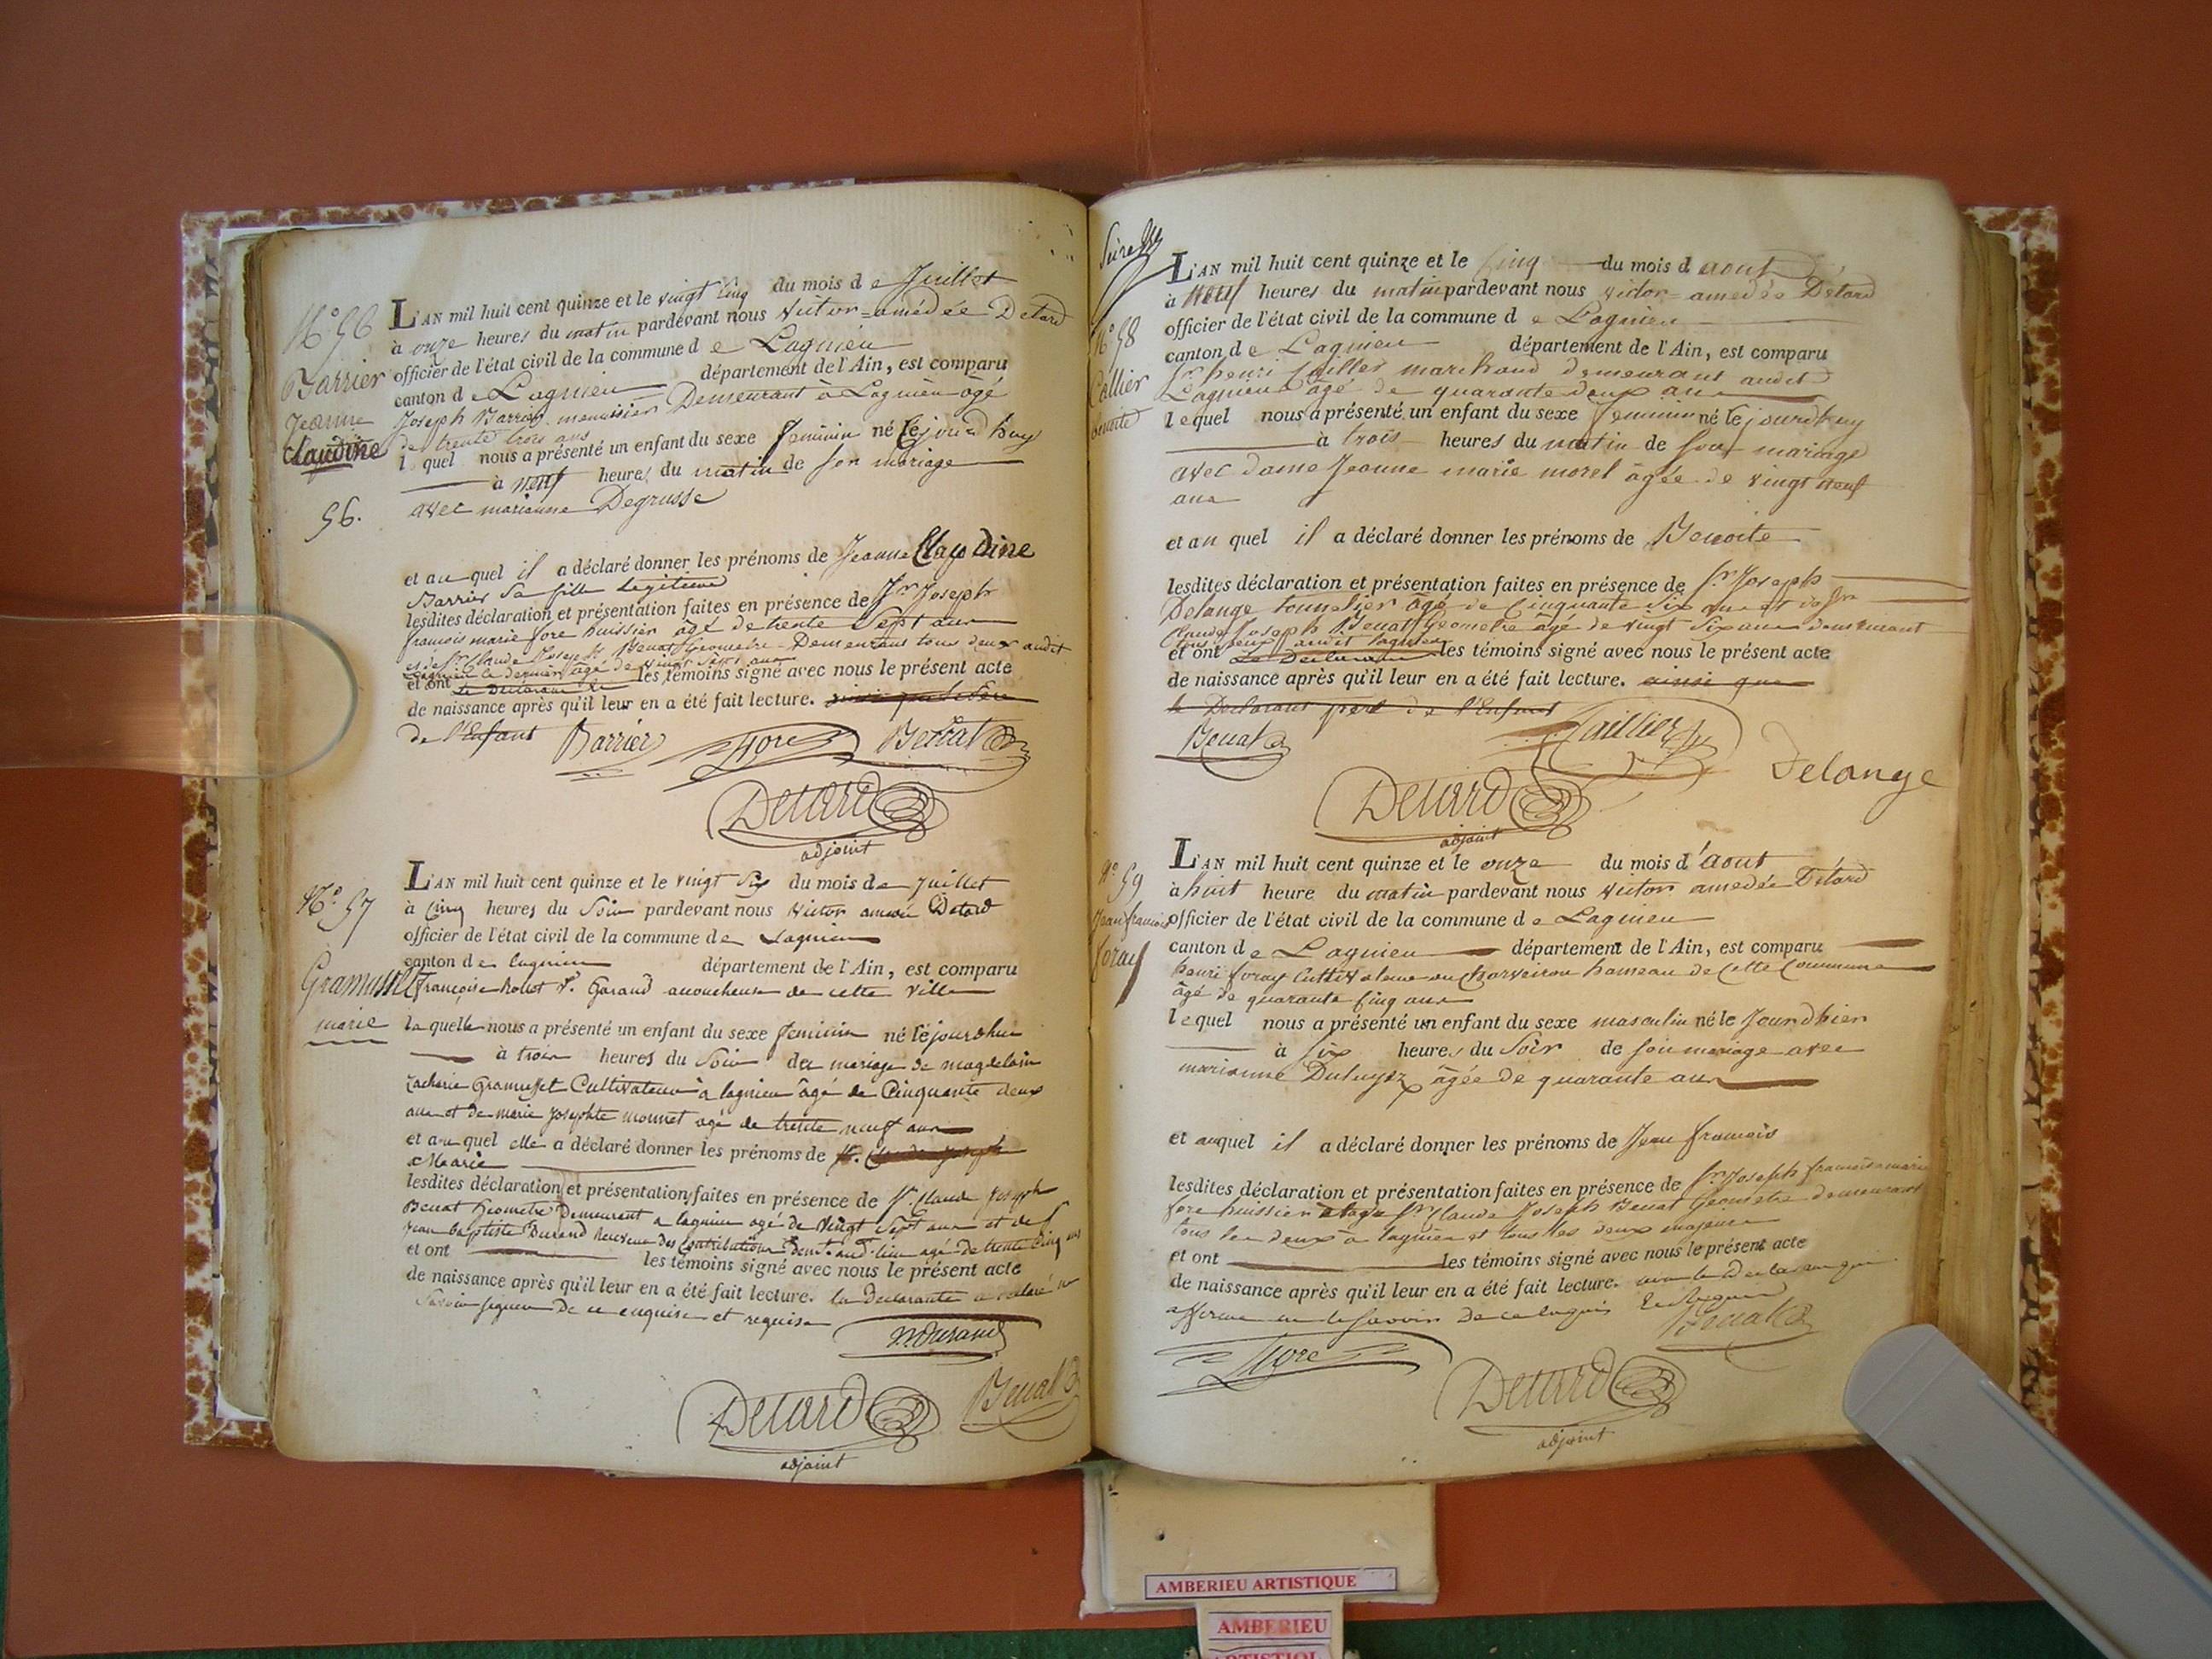 N.° 56
Barrier
Jeanne
Claudine
56.
L'AN mil huit cent quinze et le vingt cinq du mois de Juillet
à onze heures du matin pardevant nous Victor-amédée Détard
officier de l'état civil de la commune de Lagnieu
canton de Lagnieu département de l'Ain, est comparu
Joseph Barrier menuisier Demeurant à Lagnieu âgé
de trente trois ans
l quel nous a présenté un enfant du sexe feminin né lejourd'huy
à neuf heures du matin de son mariage
avec marianne Degrusse
et au quel il a déclaré donner les prénoms de Jeanne Claudine
Barrier sa fille legitime
lesdites déclaration et présentation faites en présence de Sr. Joseph
françois marie fore huissier âgé de trente Sept ans
et de Sr. Claude Joseph Benat Geometre Demeurans tous deux audit
Lagnieu le dernier âgé de vingt sept ans
et ont le declarant les témoins signé avec nous le présent acte
de naissance après qu'il leur en a été fait lecture.
de l'Enfant Barrier fore Benat
Detard
adjoint
N.° 57
Gramusset
marie
L'AN mil huit cent quinze et le vingt six du mois de juillet
à cinq heures du soir pardevant nous Victor amedée Détard
officier de l'état civil de la commune de Lagnieu
canton de lagnieu département de l'Ain, est comparu
françoise V.e Garand accoucheuse de cette ville
laquelle nous a présenté un enfant du sexe feminin né lejourdhui
à trois heures du soir du mariage de magdelain
zacharie Gramusset Cultivateur à lagnieu âgé de Cinquante deux
ans et de marie josephte monnet agé de trente neuf ans
et au quel elle a déclaré donner les prénoms de
Marie
lesdites déclaration et présentation faites en présence de Sr. Claude Joseph
Benat Geometre Demeurant a lagnieu agé de vingt sept ans et de S.
jean baptiste Durand Receveur des contributions audit lieu agé de trente cinq ans
et ont les témoins signé avec nous le présent acte
de naissance après qu'il leur en a été fait lecture. la declarante a declaré ne
savoir signer de ce enquise et requise
Durand
Detard Benat
adjoint
N.° 58
Caillier
benoite
L'AN mil huit cent quinze et le cinq du mois d aout
à neuf heures du matin pardevant nous victor-amedée Détard
officier de l'état civil de la commune de Lagnieu
canton de Lagnieu département de l'Ain, est comparu
Sr. henri Caillier marchand demeurant audit
Lagnieu âgé de quarante deux ans
lequel nous a présenté un enfant du sexe feminin né lejourdhuy
à trois heures du matin de son mariage
avec dame Jeanne marie morel âgée de vingt neuf
ans
et au quel il a déclaré donner les prénoms de Benoite
lesdites déclaration et présentation faites en présence de Sr. Joseph
Delange tonnelier âgé de cinquante six ans et de Sr.
Claude Joseph Benat Geometre âgé de vingt six ans demeurant
tous deux audit lagnieu
et ont le Declarant les témoins signé avec nous le présent acte
de naissance après qu'il leur en a été fait lecture. ainsi que
le Declarant pere de l'Enfant
Benat Caillier
Delange
Detard
adjoint
N.° 59
Jean francois
foray
L'AN mil huit cent quinze et le onze du mois d'aout
à huit heure du matin pardevant nous victor amedée Détard
officier de l'état civil de la commune de Lagnieu
canton de Lagnieu département de l'Ain, est comparu
henri foray Cultivateur au Charveiron hameau de cette Commune
âgé de quarante cinq ans
lequel nous a présenté un enfant du sexe masculin né le jourdhier
à six heures du soir de son mariage avec
marianne âgée de quarante ans
et auquel il a déclaré donner les prénoms de Jean francois
lesdites déclaration et présentation faites en présence de Sr. Joseph francois marie
fore huissier Sr. Claude Joseph Benat Geometre demeurant
tous les deux à lagnieu et tous les deux majeurs
et ont les témoins signé avec nous le présent acte
de naissance après qu'il leur en a été fait lecture.
Benat
fore
Detard
adjoint
AMBERIEU ARTISTIQUE
AMBERIEU